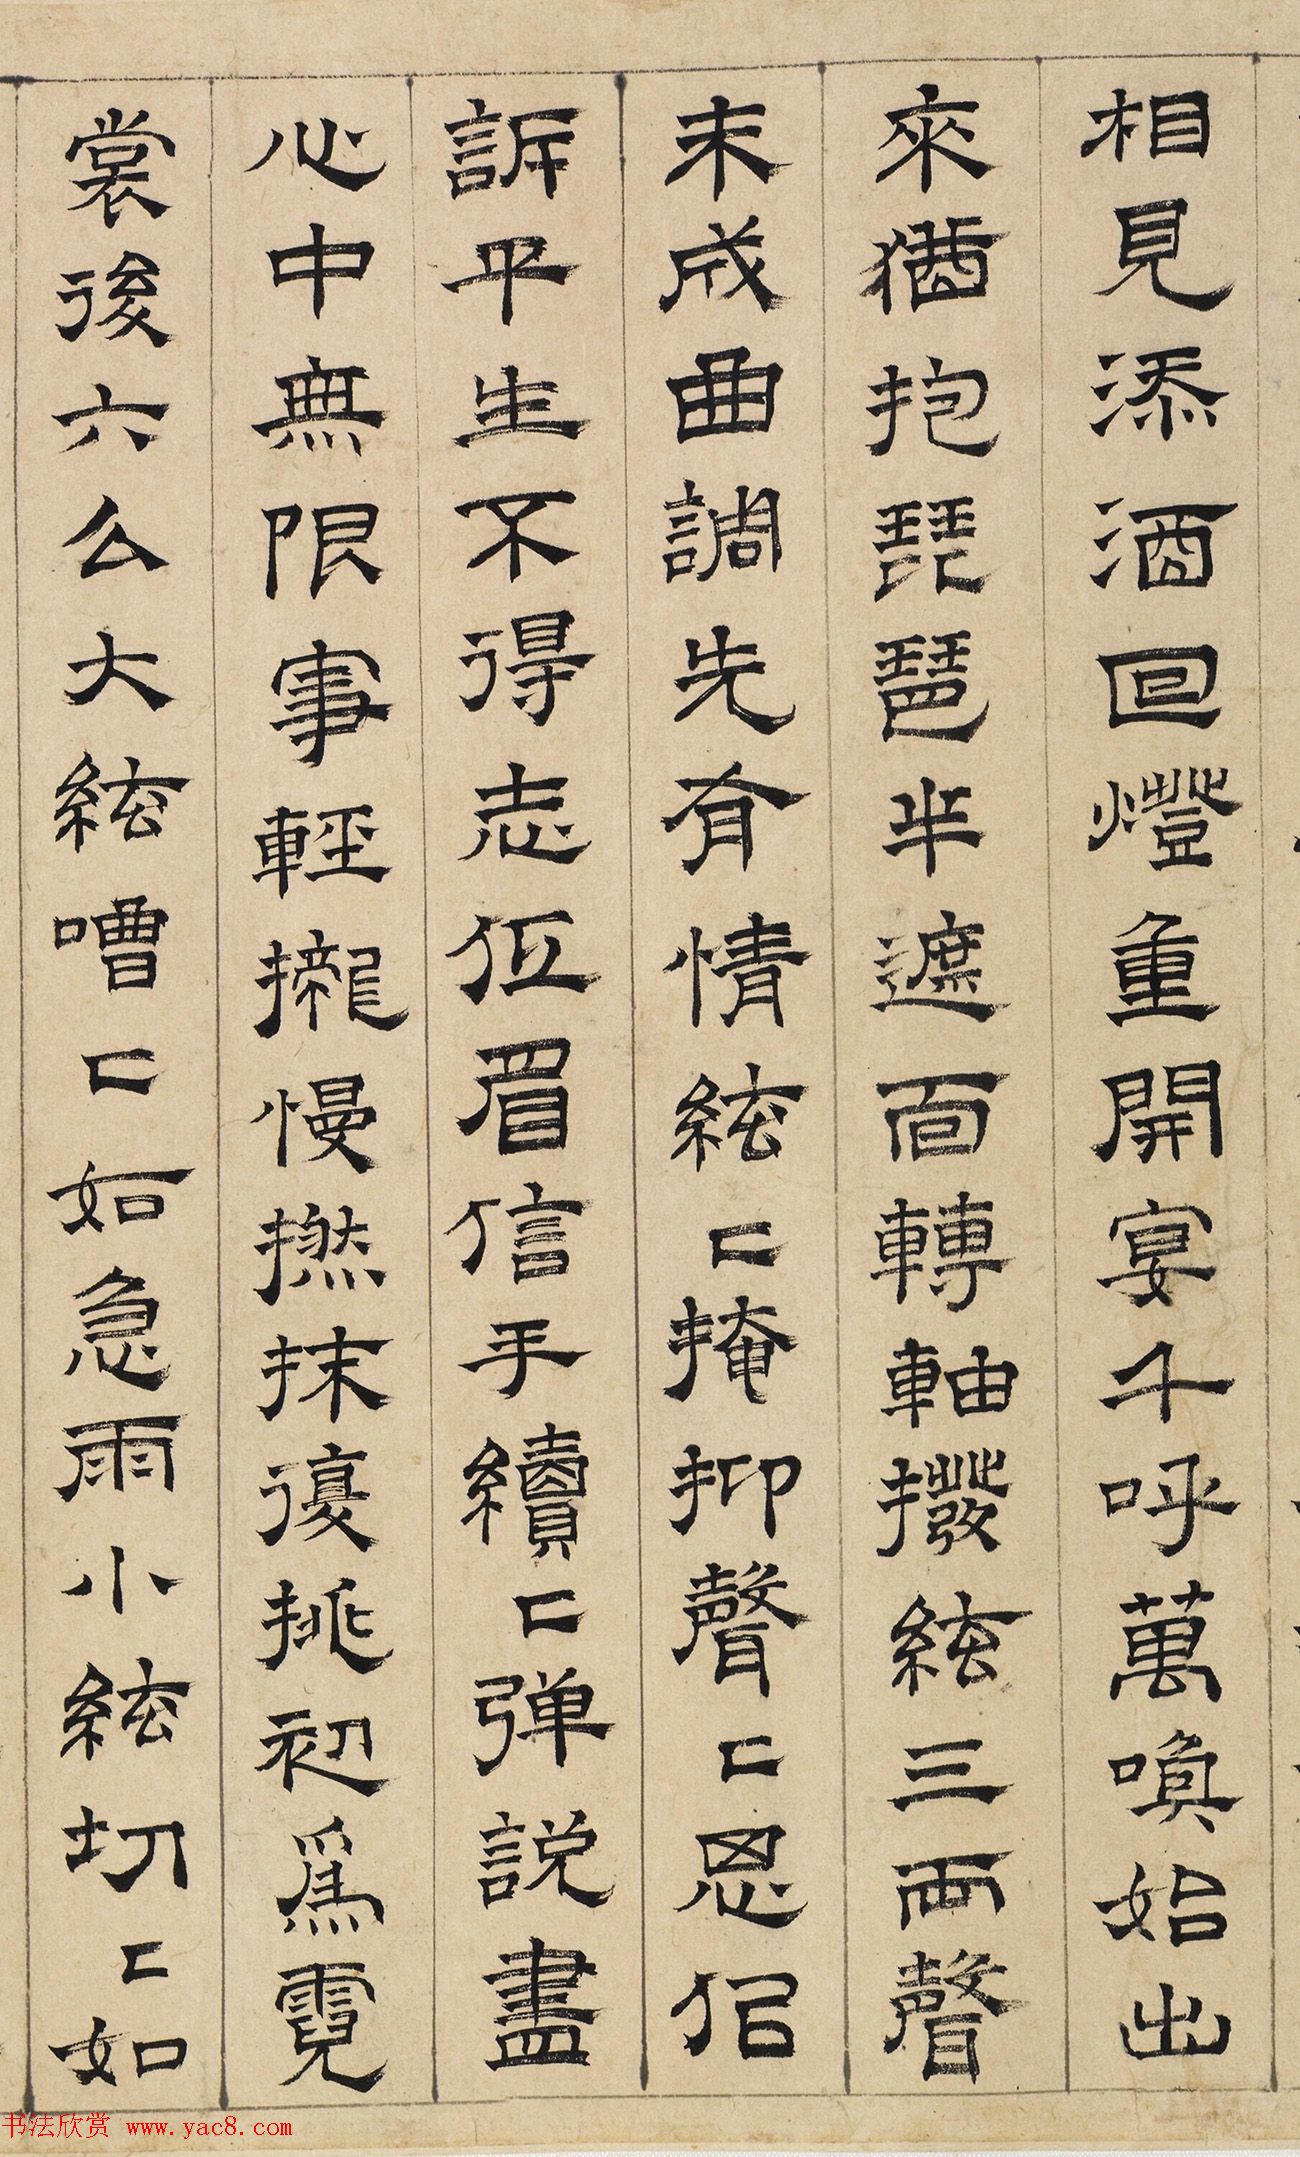 相見添酒回燈重開宴千呼萬喚始出
來猶抱琵琶半遮面轉軸撥絃三兩聲
未成曲調先有情絃〻掩抑聲〻思似
訴平生不得志低眉信手續〻弹說盡
心中無限事輕攏慢撚抹復挑初爲霓
裳後六么大絃嘈〻如急雨小絃切〻如
书法欣赏 www.yac8.com